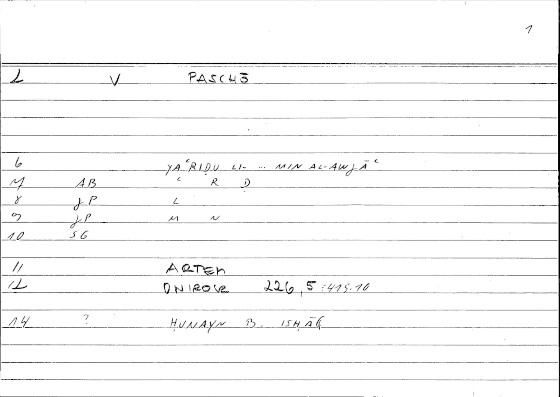 1
2 V PASCHŌ
6 YAʿRIḌU LI- ... MIN AL-AWJĀʿ
7 AB ʿ R Ḍ
8 jP L
9 jP M N
10 SG
11 ARTEM
12 ONIROCR 226,5:415.10
14 ? ḤUNAYN B. ISḤĀQ